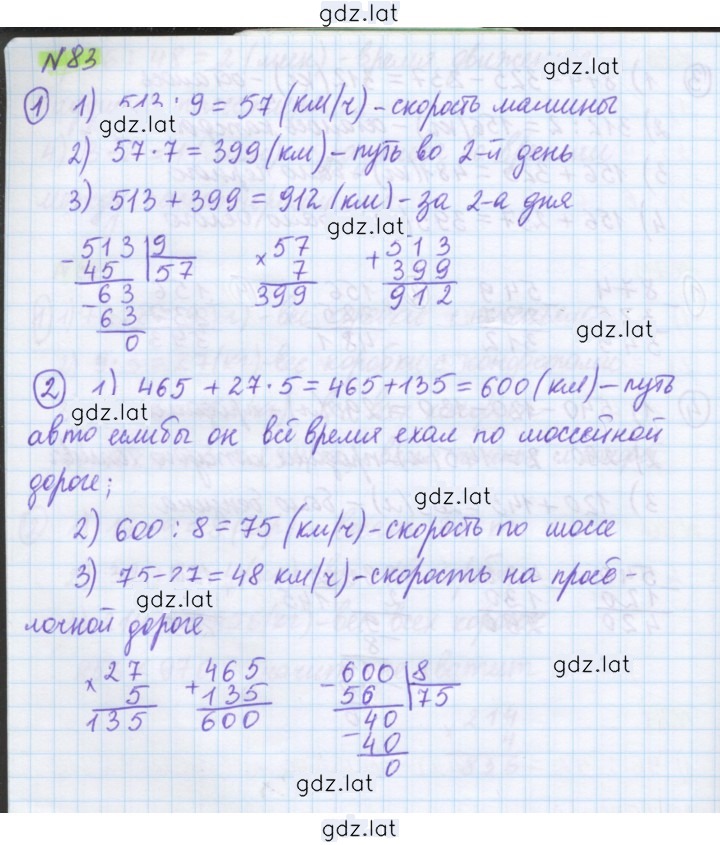 gdz.lat
№83
gdz.lat
① 1) 513 : 9 = 57 (км/ч) - скорость машины
gdz.lat
2) 57 · 7 = 399 (км) - путь во 2-й день
3) 513 + 399 = 912 (км) - за 2-а дня
gdz.lat
- 513 | 9 × 57 + 513
45 57 7 399
- 63 399 912
63
0
gdz.lat
② 1) 465 + 27 · 5 = 465 + 135 = 600 (км) - путь
gdz.lat
авто еслибы он всё время ехал по шоссейной
дороге;
gdz.lat
2) 600 : 8 = 75 (км/ч) - скорость по шоссе
3) 75 - 27 = 48 км/ч) - скорость на просё -
gdz.lat
лочной дороге
× 27 + 465 - 600 | 8
5 135 56 75
135 600 40
- 40
0
gdz.lat
gdz.lat
gdz.lat